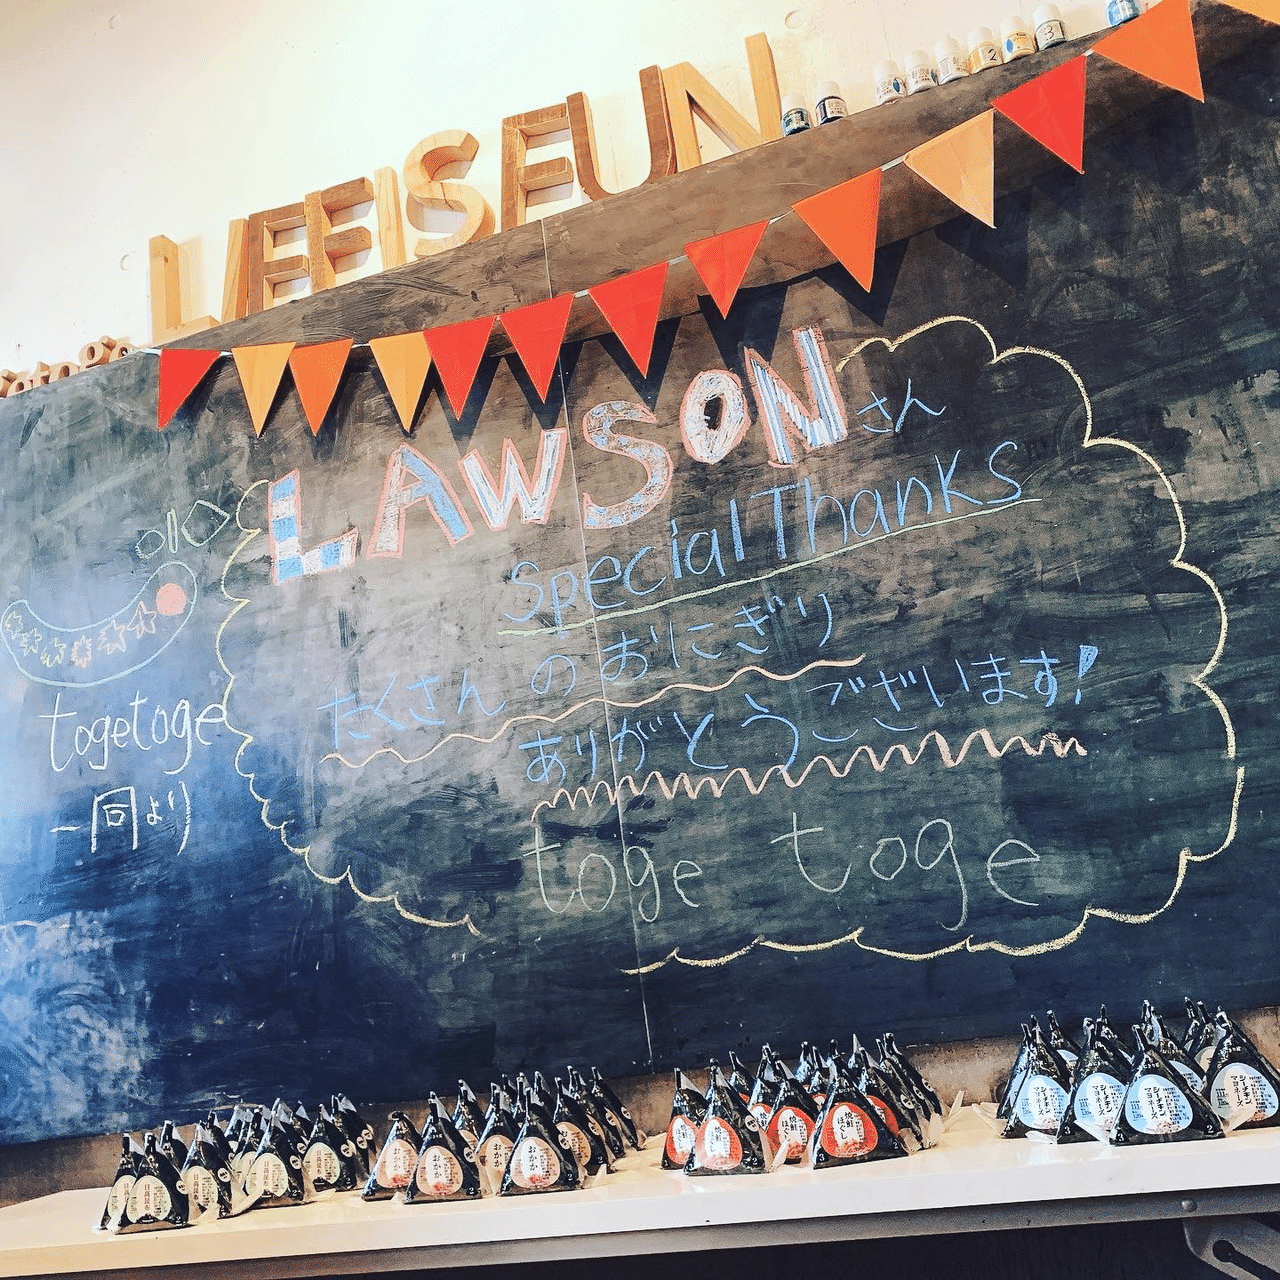 LIFE IS FUN
LAWSONさん
Special Thanks
たくさんのおにぎり
ありがとうございます!
toge toge
togetoge
一同より
日高昆布
おかか
焼鮭
ほぐし
シーチキン
マヨネーズ